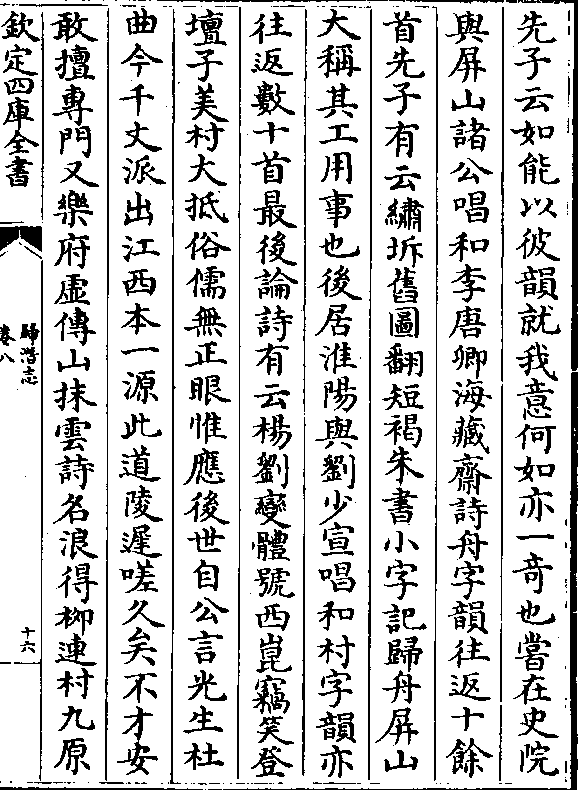 先子云如能以彼韻就我意何如亦一竒也嘗在史院
與屏山諸公唱和李唐卿海藏齋詩舟字韻往返十餘
首先子有云繡坼舊圖翻短褐朱書小字記歸舟屏山
大稱其工用事也後居淮陽與劉少宣唱和村字韻亦
往返數十首最後論詩有云楊劉變體號西崑竊笑登
壇子美村大抵俗儒無正眼惟應後世自公言光生杜
曲今千丈派出江西本一源此道陵遲嗟久矣不才安
敢擅專門又樂府虛傳山抹雲詩名浪得柳連村九原
欽定四庫全書
歸潛志
卷八
十六